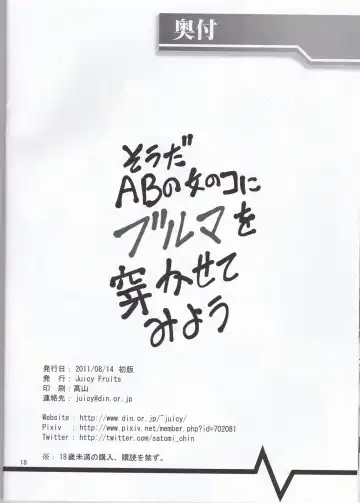 奥付
そうだ
ABの女のコに
ブルマを
穿かせて
みよう
発行日 : 2011/08/14 初版
発 行 : Juicy Fruits
印 刷 : 髙山
連絡先 : juicy@din.or.jp
Website : http://www.din.or.jp/~juicy/
Pixiv : http://www.pixiv.net/member.php?id=702081
Twitter : http://twitter.com/satomi_ohin
※ : 18歳未満の購入、購読を禁ず。
18